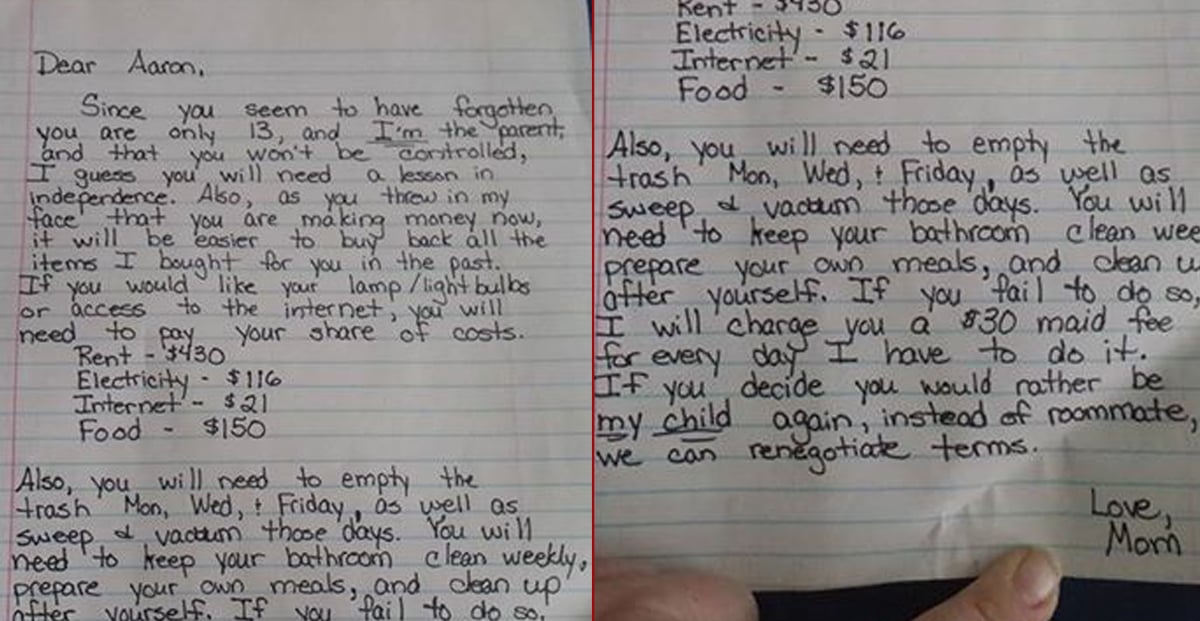 Dear Aaron,
Since you seem to have forgotten
you are only 13, and I'm the parent,
and that you won't be controlled,
I guess you will need a lesson in
independence. Also, as you threw in my
face that you are making money now,
it will be easier to buy back all the
items I bought for you in the past.
If you would like your lamp/lightbulbs
or access to the internet, you will
need to pay your share of costs.
Rent - $430
Electricity - $116
Internet - $21
Food - $150
Also, you will need to empty the
trash Mon, Wed, + Friday, as well as
sweep & vacuum those days. You will
need to keep your bathroom clean weekly,
prepare your own meals, and clean up
after yourself. If you fail to do so,
Rent - $430
Electricity - $116
Internet - $21
Food - $150
Also, you will need to empty the
trash Mon, Wed, + Friday, as well as
sweep & vacuum those days. You will
need to keep your bathroom clean wee
prepare your own meals, and clean u
after yourself. If you fail to do so,
I will charge you a $30 maid fee
for every day I have to do it.
If you decide you would rather be
my child again, instead of roommate,
we can renegotiate terms.
Love,
Mom